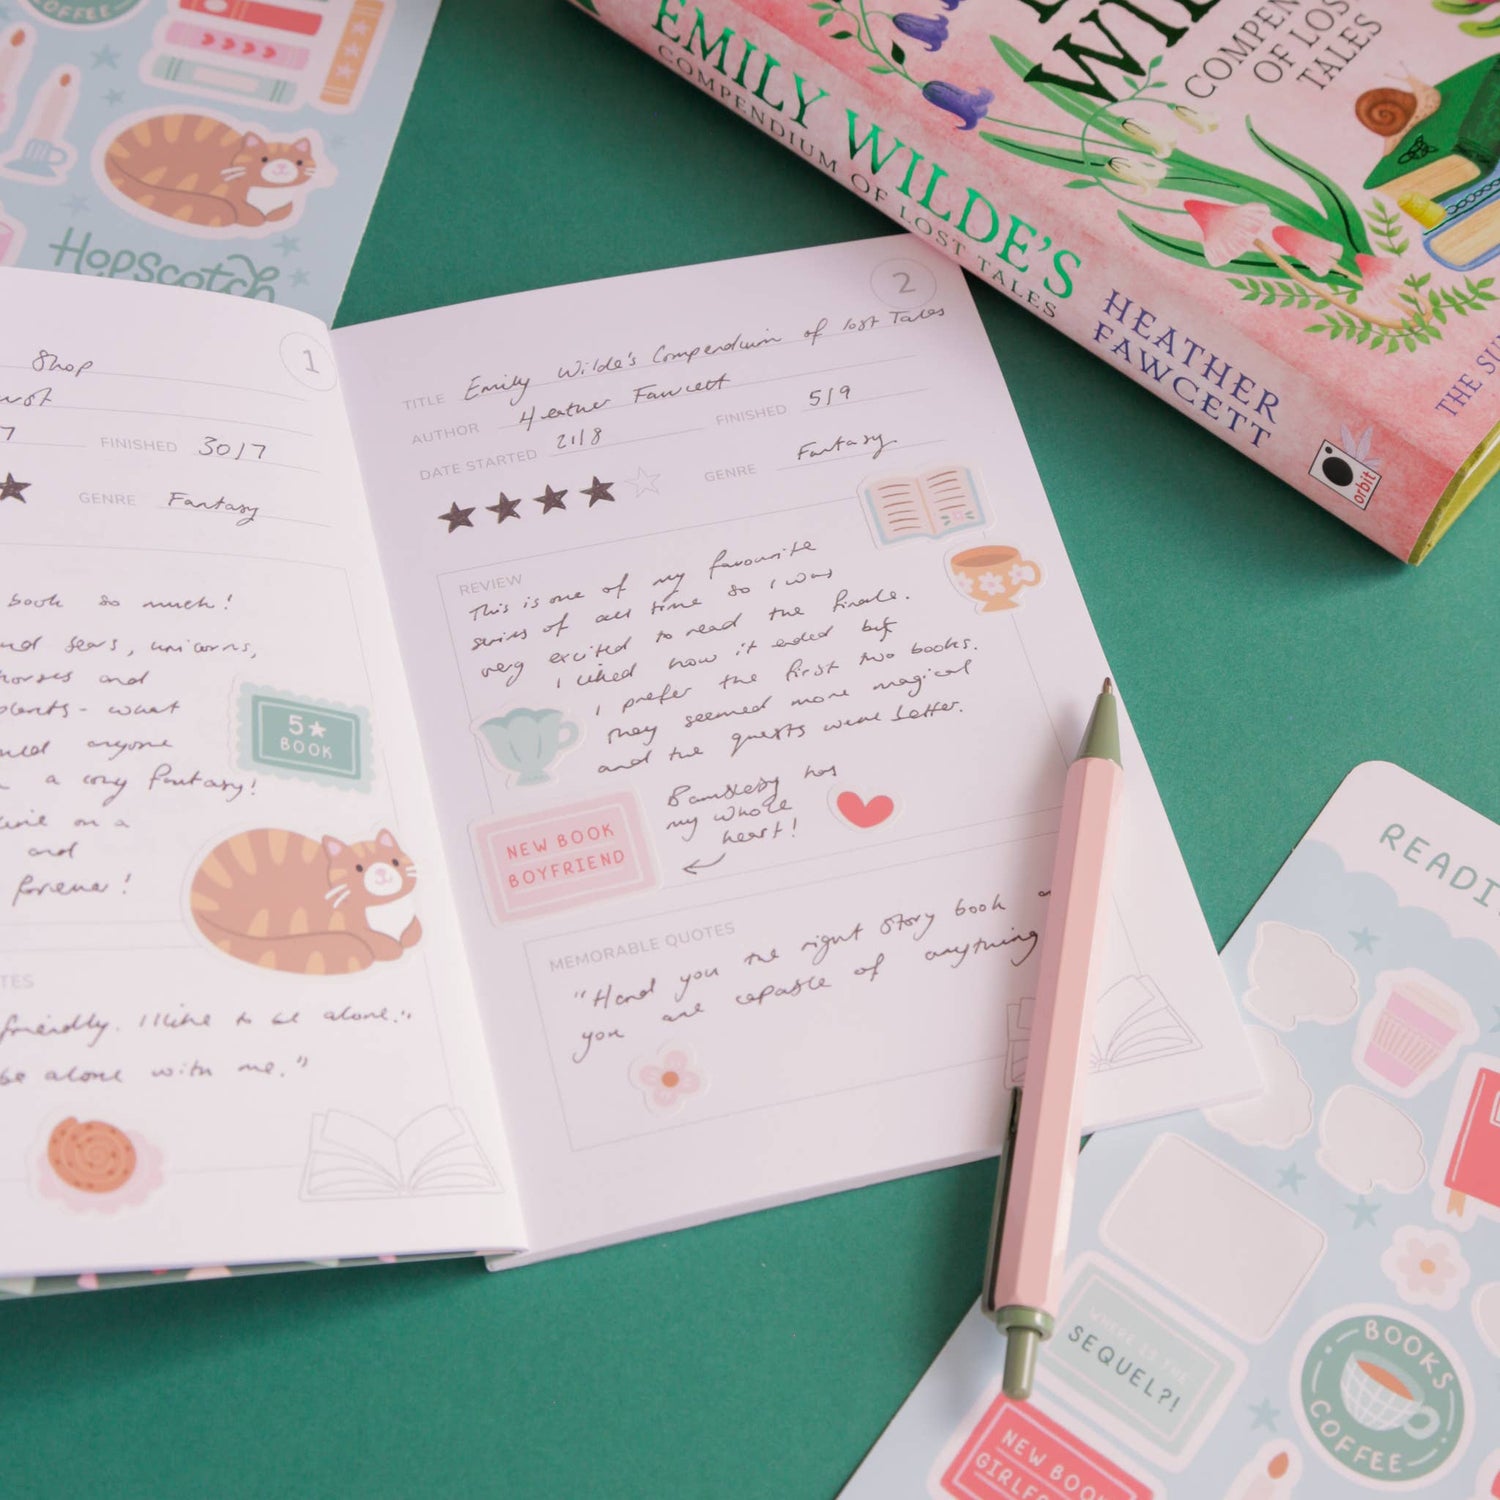 COFFEE
Hopscotch
EMILY WILDE'S
COMPENDIUM OF LOST TALES
HEATHER
FAWCETT
orbit
WIL
COMPEN
OF LOST
TALES
THE SU
1
Shop
7
FINISHED 30/7
GENRE Fantasy
book so much!
unicorns,
horses and
plants - what
anyone
a cosy fantasy!
on a
and
forever!
5★
BOOK
TES
friendly. I like to be alone."
be alone with me."
2
TITLE Emily Wilde's Compendium of lost Tales
AUTHOR Heather Fawcett
DATE STARTED 21/8 FINISHED 5/9
GENRE Fantasy
REVIEW
This is one of my favourite
series of all time so I was
very excited to read the finale.
I liked how it ended but
I prefer the first two books.
They seemed more magical
and the quests were better.
Bambleby has
my whole
heart!
NEW BOOK
BOYFRIEND
MEMORABLE QUOTES
"Hand you the right story book
you are capable of anything
you
READI
WHERE IS THE
SEQUEL?!
NEW BOO
GIRLF
BOOKS
COFFEE